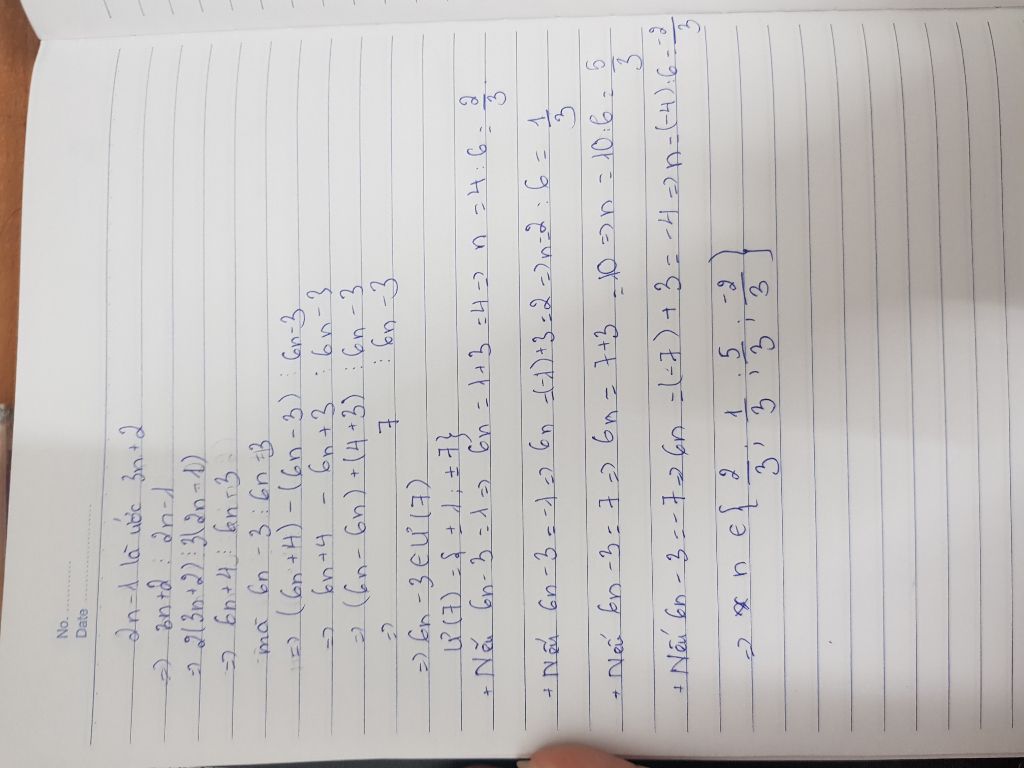 No. ..............
Date ..........................
2n-1 là ước 3n+2
=> 3n+2 ⋮ 2n-1
=> 2(3n+2) ⋮ 3(2n-1)
=> 6n+4 ⋮ 6n-3
mà 6n-3 ⋮ 6n-3
=> (6n+4) - (6n-3) ⋮ 6n-3
=> 6n+4 - 6n+3 ⋮ 6n-3
=> (6n-6n) + (4+3) ⋮ 6n-3
=> 7 ⋮ 6n-3
=> 6n-3 ∈ Ư(7)
Ư(7) = { ±1; ±7}
+ Nếu 6n-3=1 => 6n=1+3=4 => n=4:6=2/3
+ Nếu 6n-3=-1 => 6n=(-1)+3=2 => n=2:6=1/3
+ Nếu 6n-3=7 => 6n=7+3=10 => n=10:6=5/3
+ Nếu 6n-3=-7 => 6n=(-7)+3=-4 => n=(-4):6=-2/3
=> n ∈ {2/3; 1/3; 5/3; -2/3}